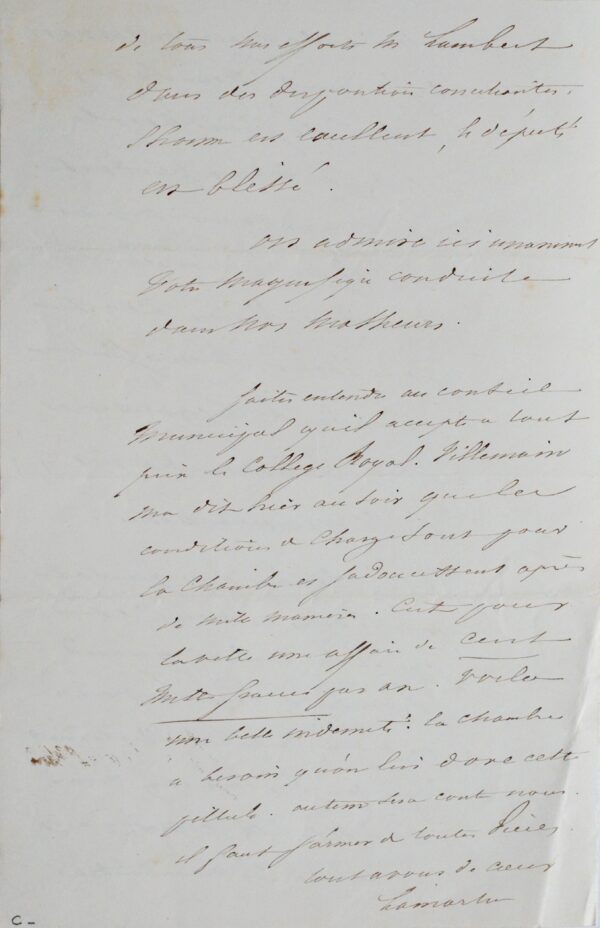 de tous nos efforts M Lambert
dans des dispositions conciliantes.
l'homme est excellent, le député
est blessé.
on admire ici unanimmt
votre magnifique conduite
dans nos malheurs.
faites entendre au conseil
municipal qu'il accepte a tout
prix le College Royal. Villemain
ma dit hier au soir que les
conditions de charge sont pour
la Chambre et s'adoucissent après
de mille manieres. C'est pour
la ville une affaire de cent
mille francs par an. Voila
une belle indemnité. la chambre
a besoin qu'on lui dore cette
pillule. autem sera cont nous.
il faut s'armer de toutes pièces.
tout a vous de cœur
Lamartine
C -